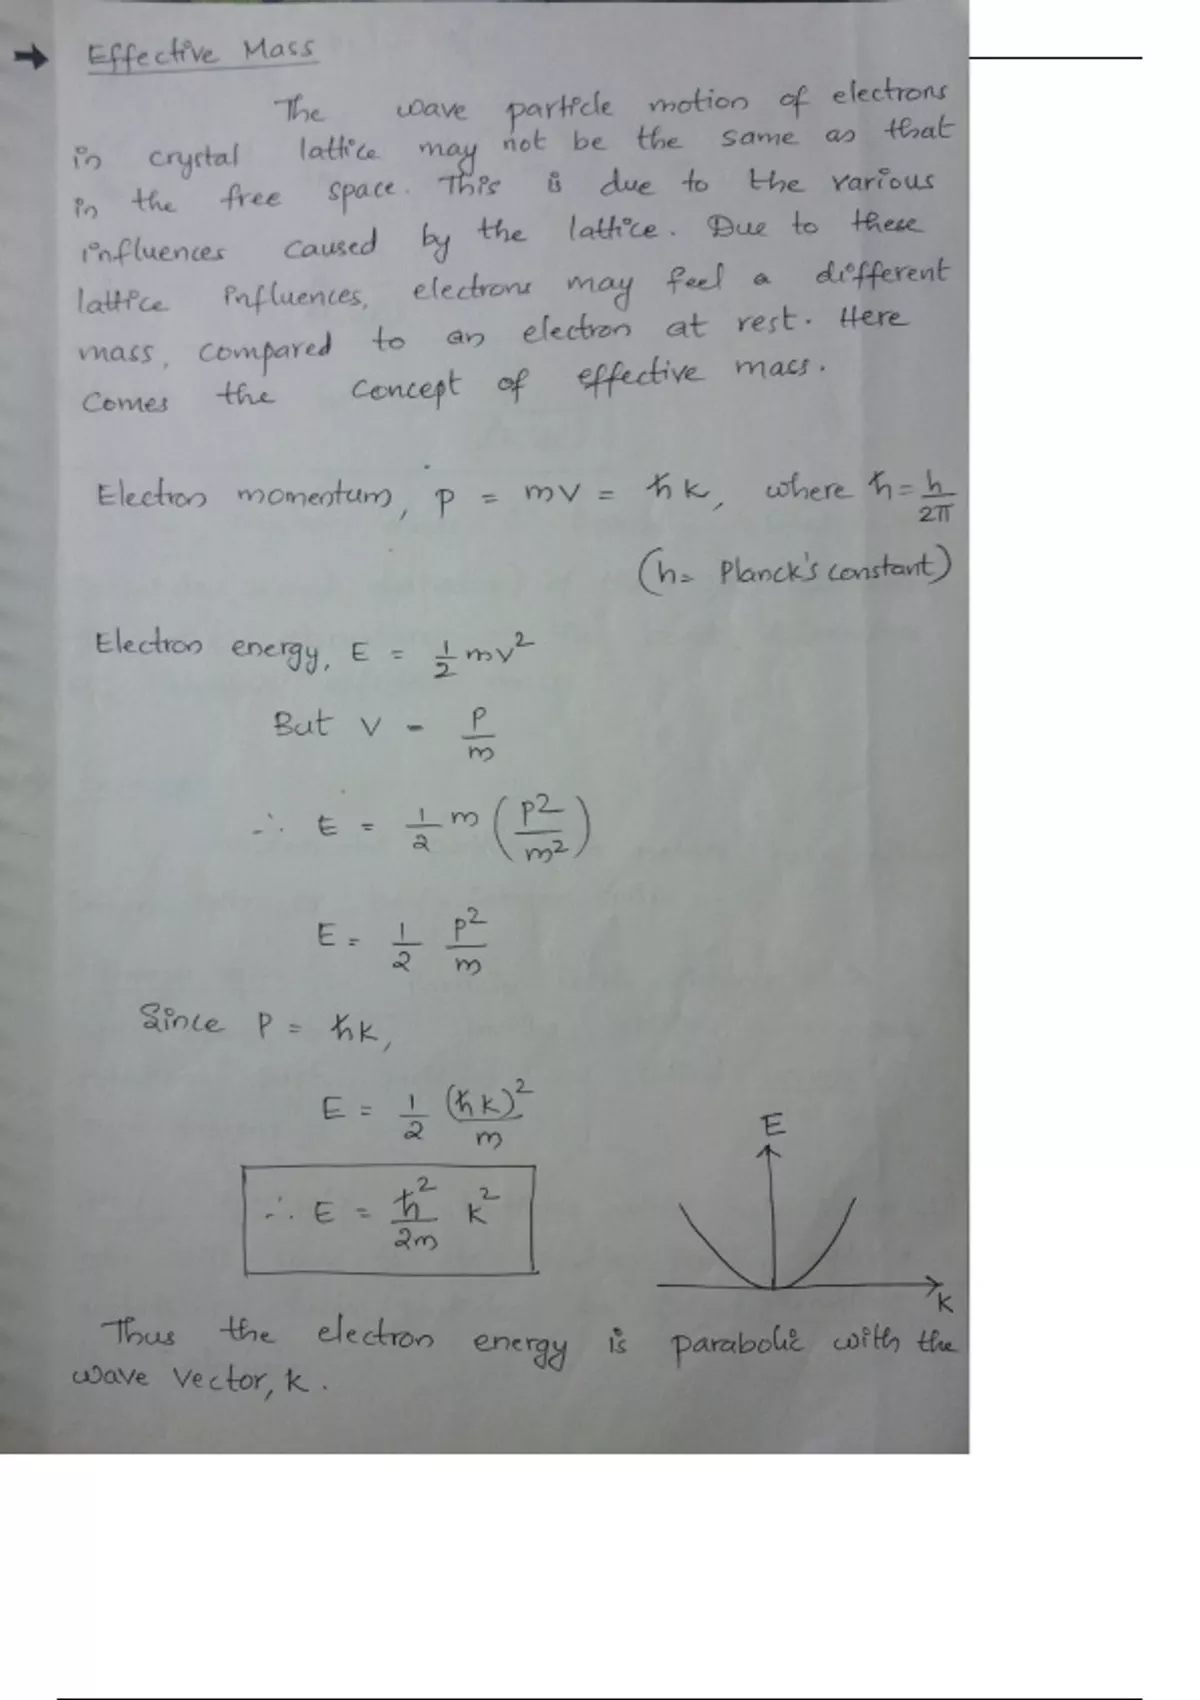 → Effective Mass
The wave particle motion of electrons
in crystal lattice may not be the same as that
in the free space. This is due to the various
influences caused by the lattice. Due to these
lattice influences, electrons may feel a different
mass, compared to an electron at rest. Here
comes the concept of effective mass.
Electron momentum, p = mv = ħk, where ħ = h/2π
(h = Planck's constant)
Electron energy, E = 1/2 mv²
But v = p/m
∴ E = 1/2 m (p²/m²)
E = 1/2 p²/m
Since p = ħk,
E = 1/2 (ħk)²/m
E
∴ E = ħ²/2m k²
k
Thus the electron energy is parabolic with the
wave vector, k.